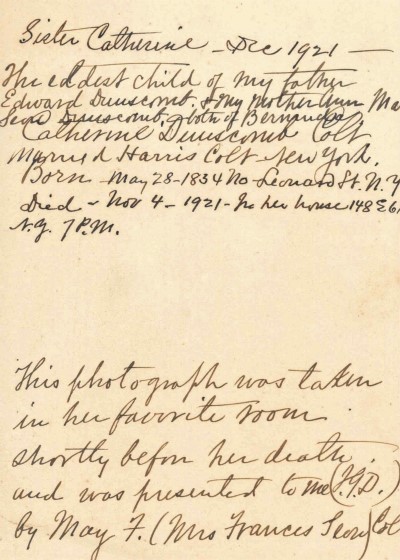 Sister Catherine - Dec 1921 -
The eldest child of my father
Edward Dunscomb. & my mother Ann Ma
Dunscomb, both of Bermuda
Catherine Dunscomb Colt
Married Harris Colt - New York.
Born - May 28 - 1834 No - Leonard St. N.Y
Died - Nov 4 - 1921 - In her house 148 E 61
N.Y. 7 P.M.
This photograph was taken
in her favorite room
shortly before her death.
and was presented to me (J.G.D.)
by May F. (Mrs Frances Colt